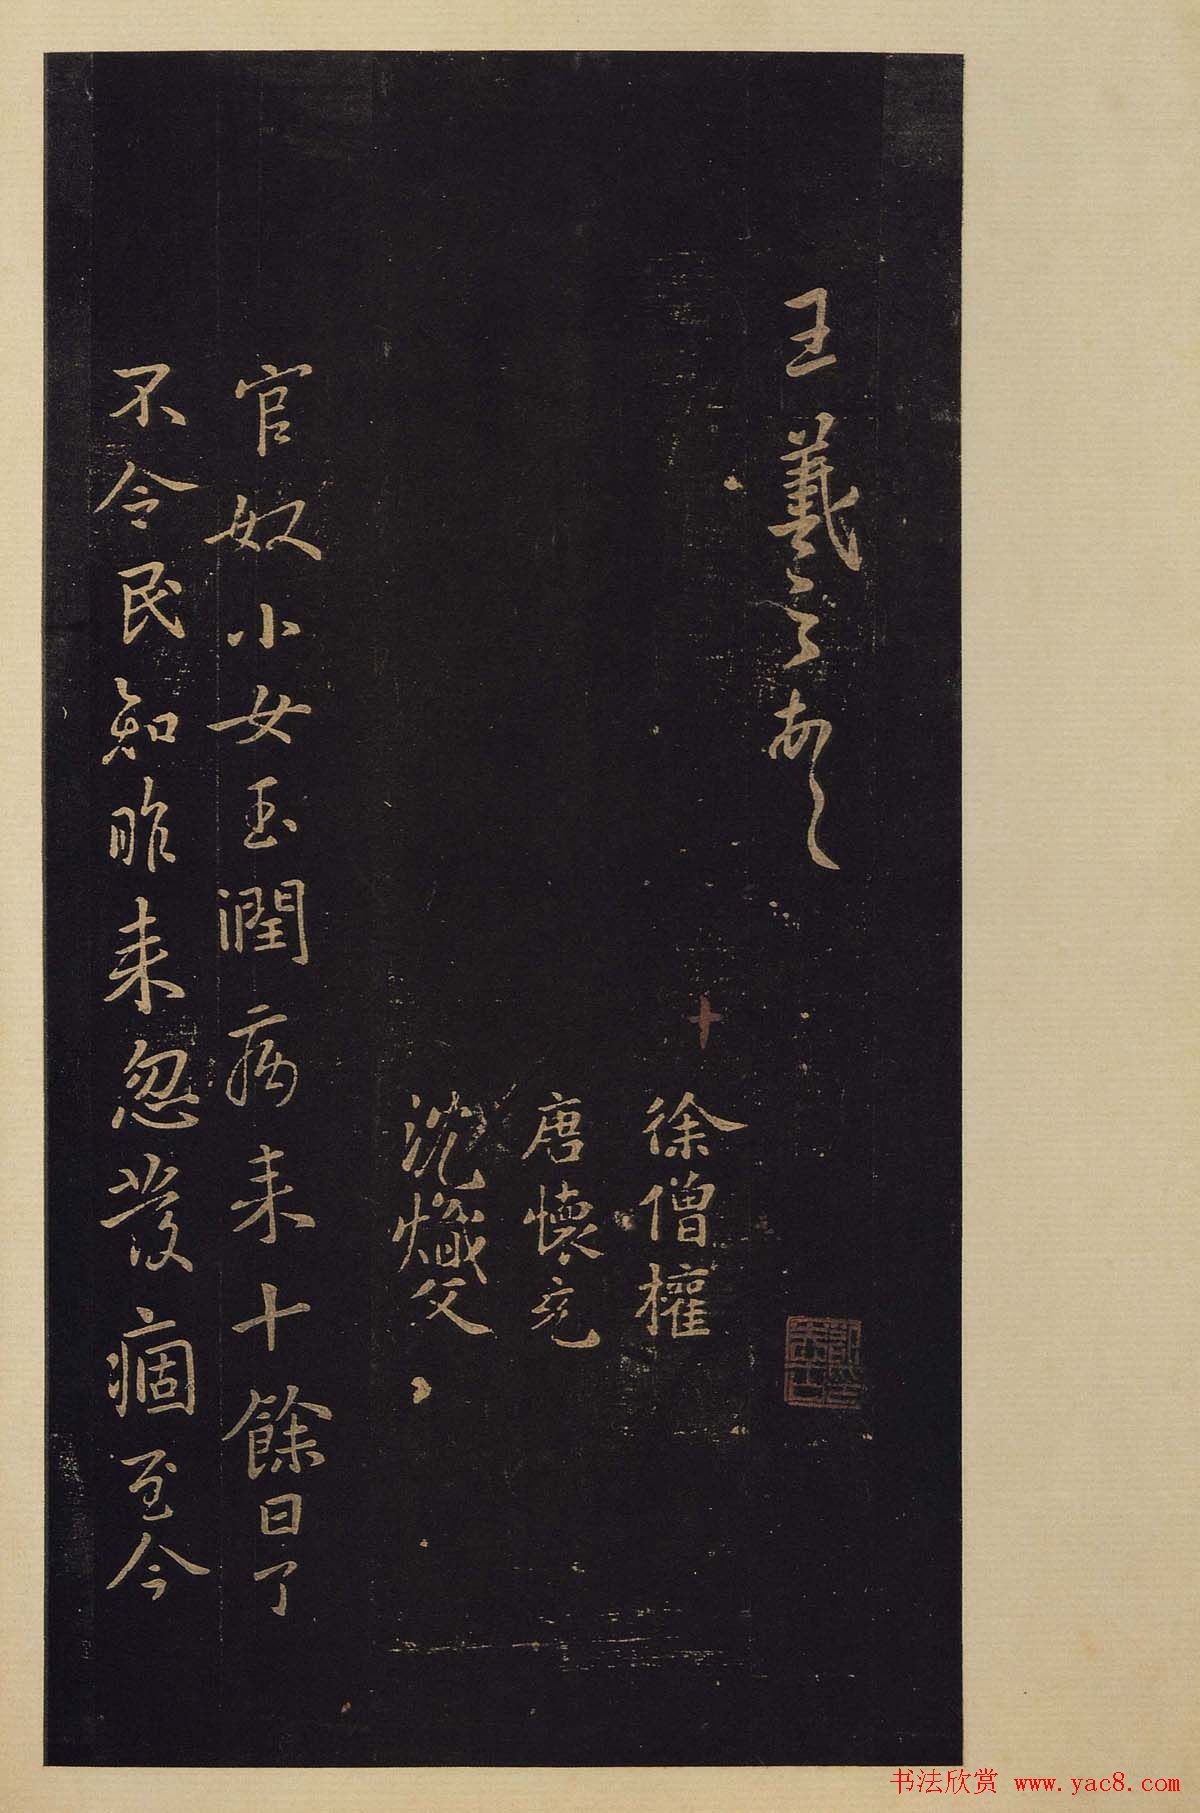 王羲之頓
徐僧權
唐懷充
沈熾文
官奴小女玉潤病来十餘日了
不令民知昨来忽發痼至今
书法欣赏 www.yac8.com